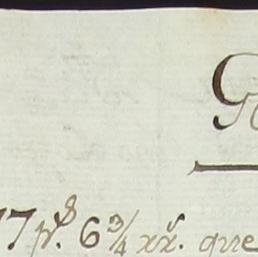 7 p.s 6 3/4 xx. que